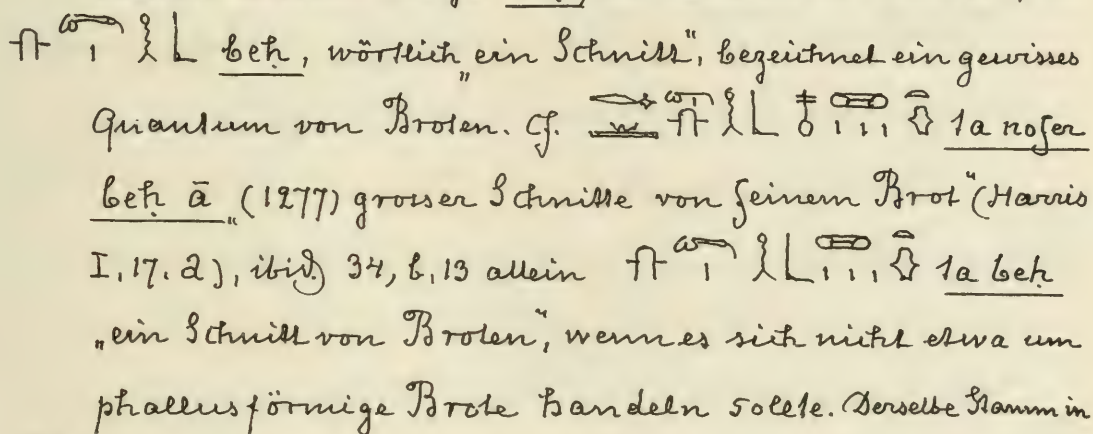 beḥ, wörtlich „ein Schnitt", bezeichnet ein gewisses
Quantum von Broten. Cf. ta nofer
beḥ ā „(1277) grosser Schnitte von feinem Brot" (Harris
I, 17. a), ibid. 34, b, 13 allein ta beḥ
„ein Schnitt von Broten", wenn es sich nicht etwa um
phallusförmige Brote handeln sollte. Derselbe Stamm in